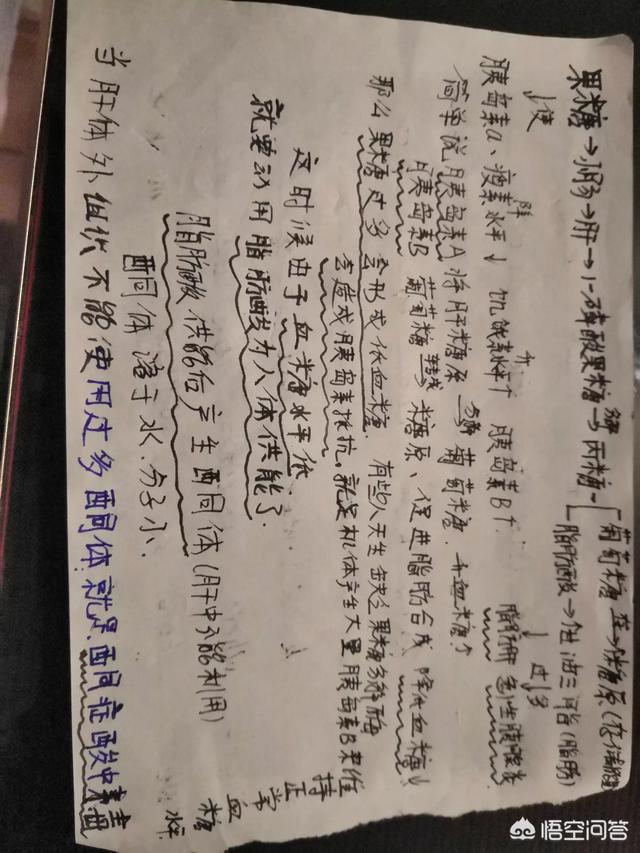 果糖→肠→肝→1-磷酸果糖→丙糖
分解
葡萄糖
脂肪酸→甘油三脂(脂肪)
↓使
↓过多
胰岛素a、瘦素水平↓ 饥饿素水平↑ 胰岛素B↑
降
升
脂肪肝 急性胰腺炎
简单说胰岛素A将肝糖原分解葡萄糖,升血糖↑
胰岛素B 葡萄糖转成糖原、促进脂肪合成 降低血糖↓
那么果糖过多会形成低血糖. 有些人天生缺乏果糖分解酶
会造成胰岛素抵抗。就是机体产生大量胰岛素B来维
持正常血糖水平
这时候由于血糖水平低
就要动用脂肪酸为人体供能了.
脂肪酸供能后产生酮体(肝中不能利用)
酮体溶于水.分子小.
当肝体外组织不能使用过多酮体就是酮症酸中毒
悟空问答